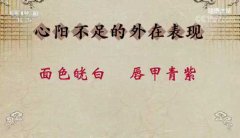 心阳不足的外在表现
面色㿠白 唇甲青紫